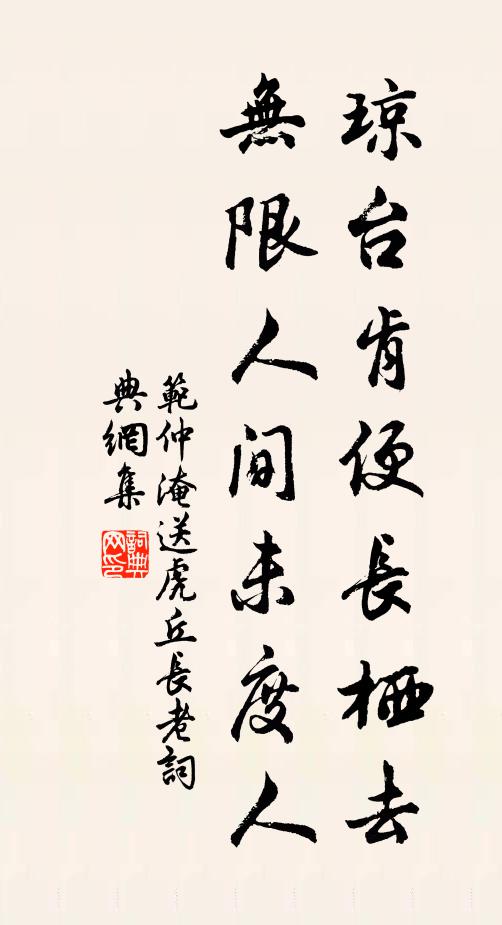 琼台肯便長栖去
無限人间未度人
範仲淹送虎丘長老詞
典網集
詞典网印